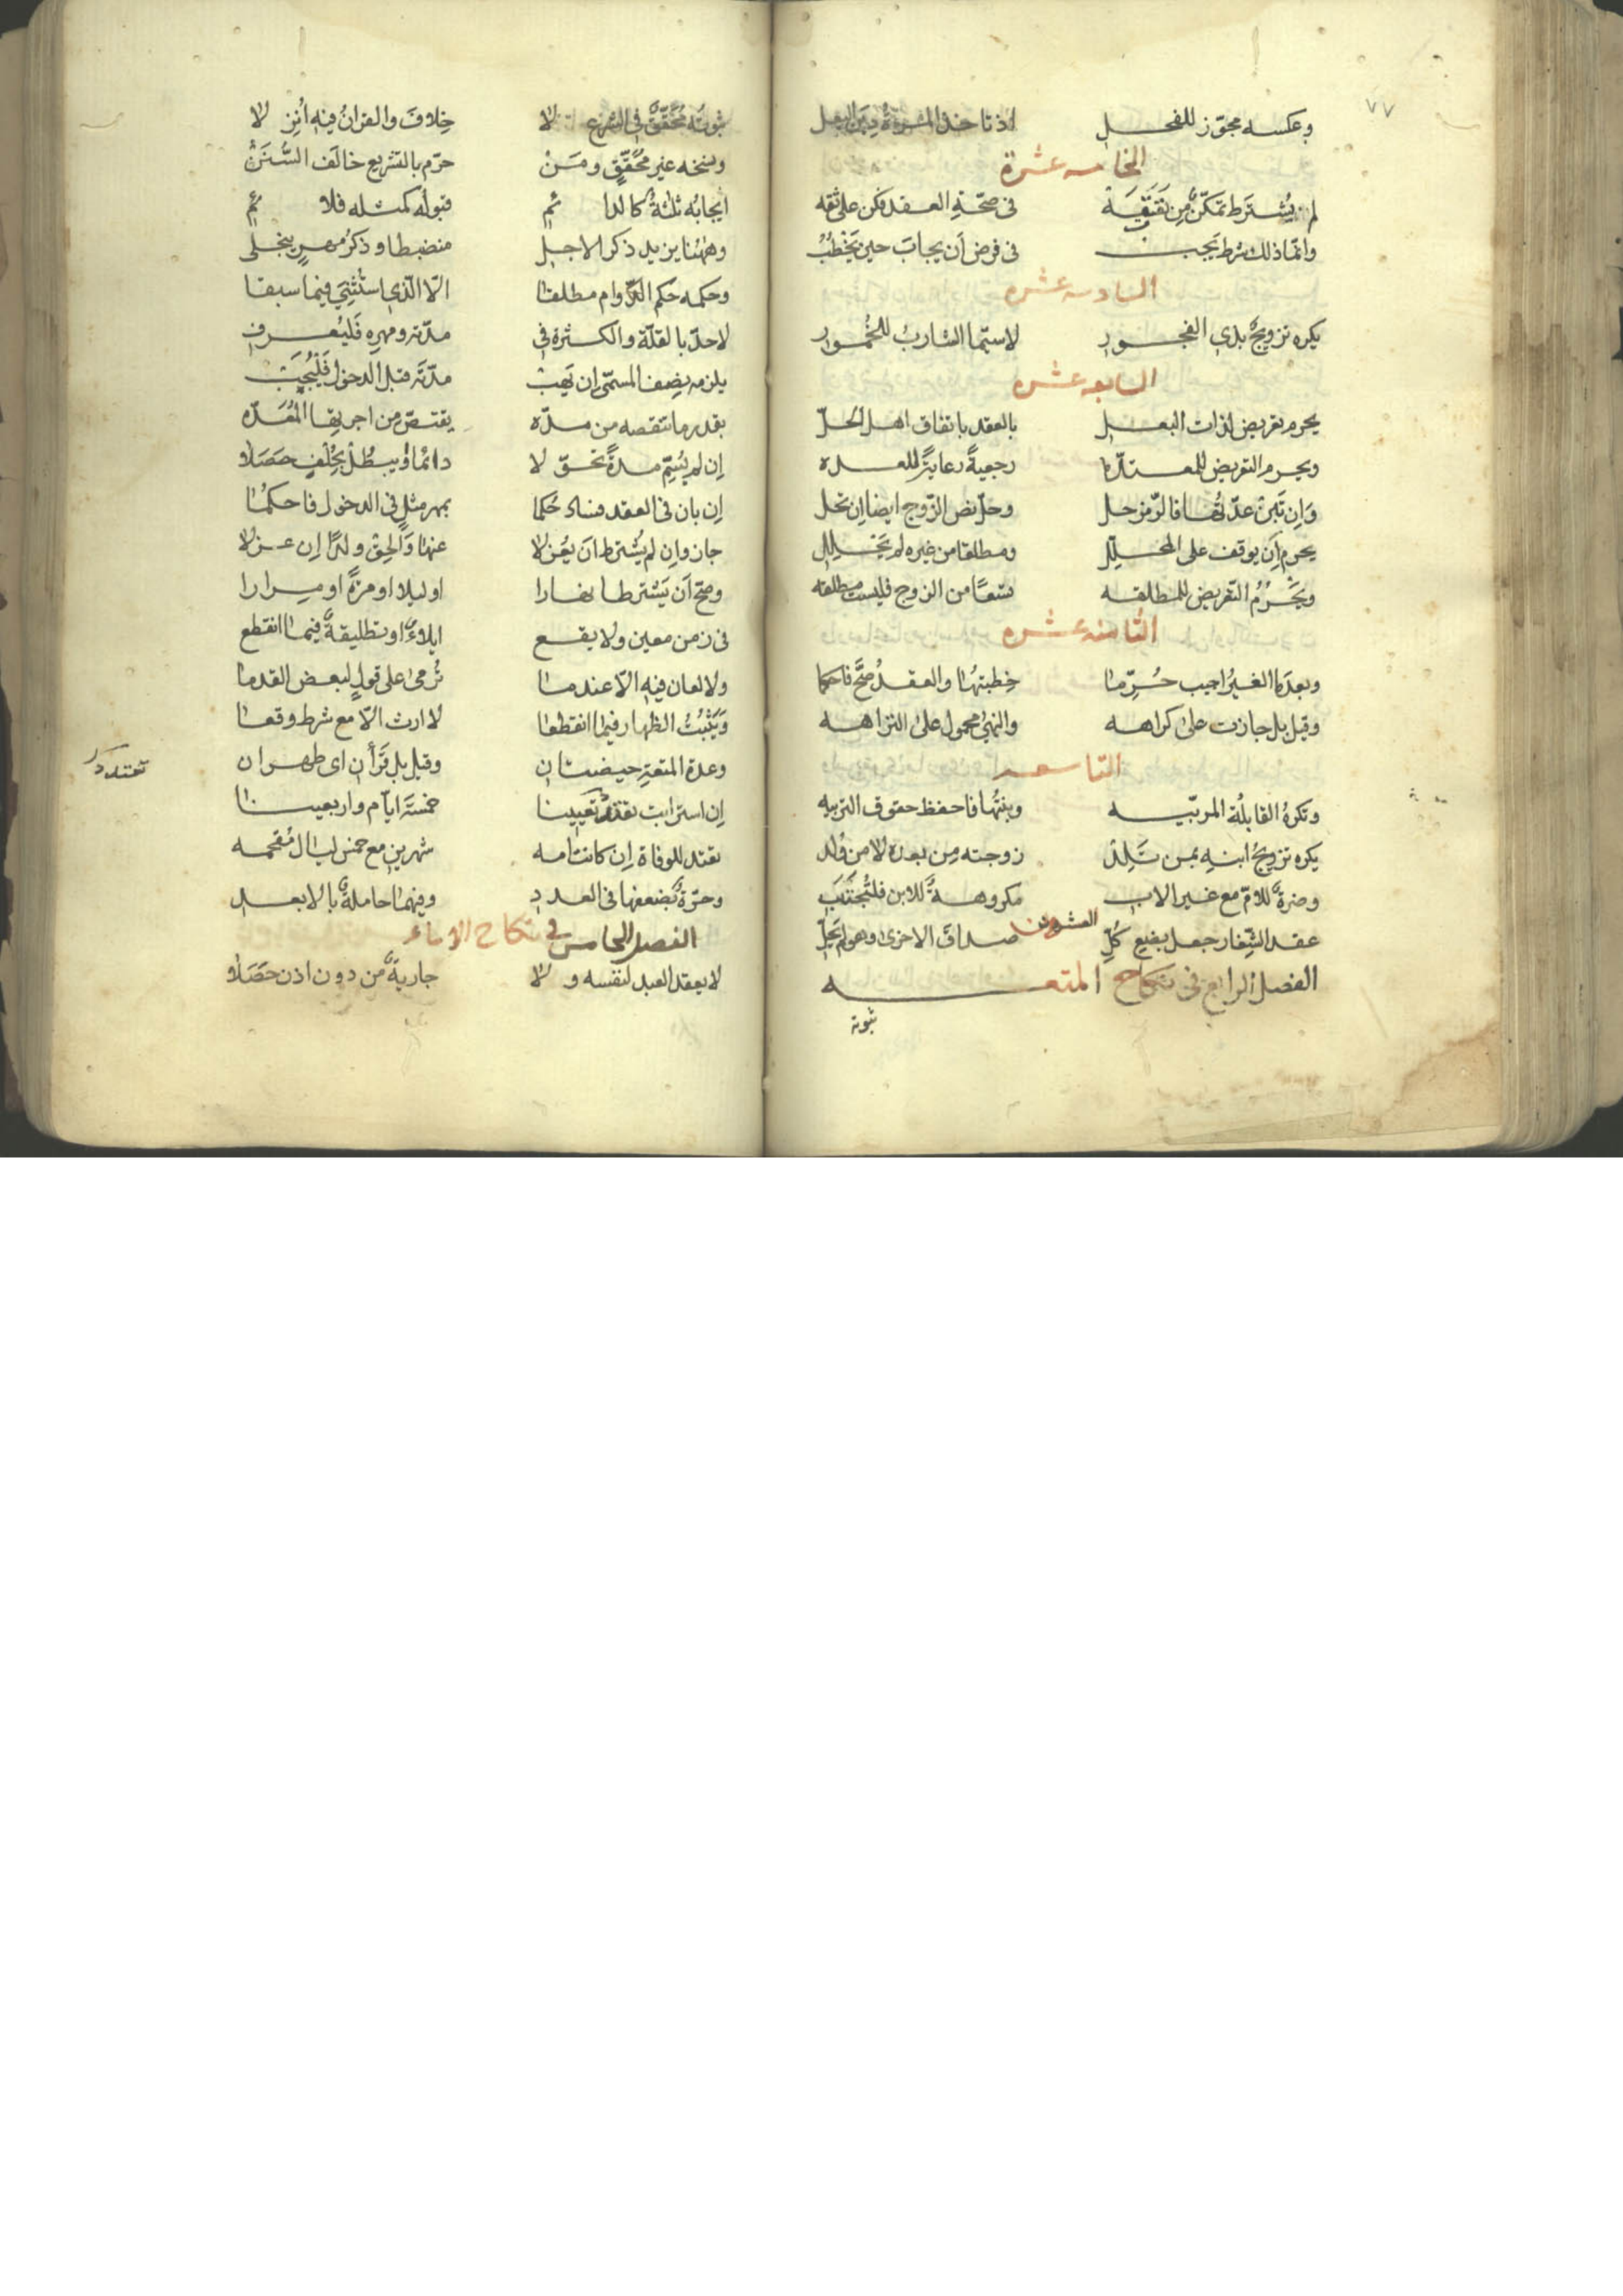 ٧٧
وعكسه مجوّز للفحل اذ تاخذ المرأة دين البعل
الخامسه عشرة
لم يشترط تمكّن من نفقة فى صحّة العقد فكن على ثقه
وانّما ذلك شرط يجب فى فرض أن يجاب حين يخطب
السادسه عشره
يكره تزويج بذى الفجور لاسيّما الشارب للخمور
السابعه عشره
يحرم تعريض لذات البعل بالعقد باتفاق اهل الحلّ
ويحرم التعريض للمعتدّه رجعيةً رعايةً للعده
وان تبن عدّتها فالرّمز حل وحلّ نص الزّوج ايضا ان تحل
يحرم ان يوقف على المحلّل ومطلقا من غيره لم يحلل
ويحرم التعريض للمطلقه تسعًا من الزوج فليست مطلقه
الثامنه عشره
وبعد ما الغير اجيب حرّما خطبتها والعقد صحّ فاحكما
وقيل بل جازت على كراهه والنهى محمول على النزاهه
التاسعه
وتكره القابلة المربّيه وبنتها فاحفظ حقوق التربيه
يكره تزويج ابنه بمن تلد زوجته من بعده لا من ولد
وضرة للامّ مع غير الاب مكروهة للابن فلتجتنب
العشرون
عقد الشّغار جعل بضع كلّ صداق الاخرى وهو لم يحلّ
الفصل الرابع فى نكاح المتعه
ثبوته
ثبوته محقّق فى الشرع لا خلاف والقران فيه انزلا
ونسخه غير محقّق ومن حرّم بالتشريع خالف السّنن
ايجابه ثلثة كالدائم قبوله كمثله فلائم
وههنا يزيد ذكر الاجل منضبطا وذكر مهر ينجلى
وحكمه حكم الدّوام مطلقا الّا الّذى استثنى فيما سبقا
لاحدّ بالقلّة والكثرة فى مدّته ومهره فليعرف
يلزمه نصف المسمّى ان يهب مدّته قبل الدخول فليجب
بقدر ما تنقصه من مدّه يقتصّ من اجر بها المعدّه
ان لم يسمّ مدةً تحقّق لا دائما او يبطل بخلف حصلا
ان بان فى العقد فساد حكما بمهر مثل فى الدخول فاحكما
جاز وان لم يشترط ان يعزلا عنها والحق ولدًا ان عزلا
وصحّ ان يشترطا نهارا او ليلا او مرةً او مرارا
فى زمن معين ولا يقع ايلاء او تطليقة فيما انقطع
ولا لعان فيه الّا عندما ترمى على قول لبعض القدما
ويثبت الظهار فيما انقطعا لا ارث الّا مع شرط وقعا
وعدة المتعة حيضتان وقيل بل قرأن اى طهران
تعتدد
ان استرابت تعتدد تعيينا خمسة ايّام واربعينا
تعتد للوفاة ان كانت امه شهرين مع خمس ليال مقحمه
وحرّة بضعفها فى العدد وفيهما حاملة بالابعد
الفصل الخامس فى نكاح الاماء
لا يعقد العبد لنفسه ولا جارية من دون اذن حصلا